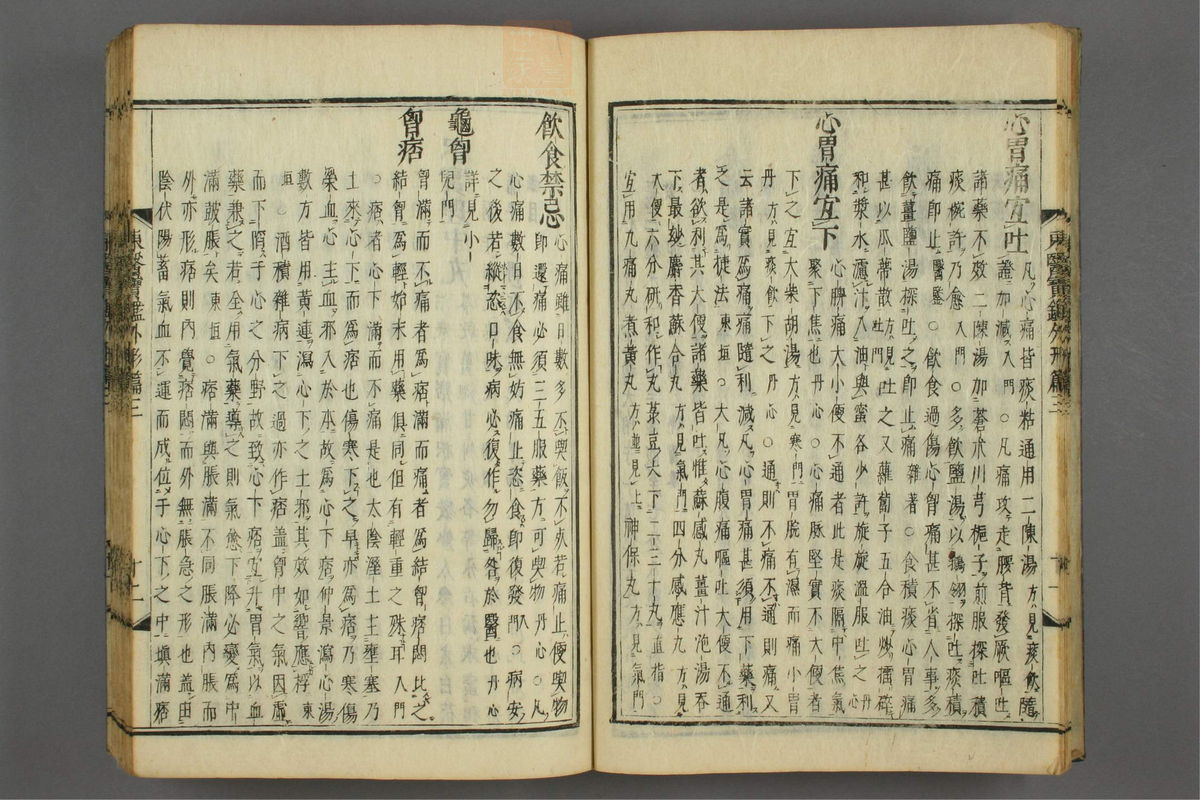 心胃痛宜吐
凡心痛皆痰粘通用二陳湯方見痰飮隨
證加減入門○凡痛攻走腰背發厥嘔吐
諸藥不效二陳湯加蒼朮川芎梔子煎服探吐積
痰椀許乃愈入門○多飮鹽湯以鵝翎探吐痰積
痛即止醫鑑○飮食過傷心胷痛甚不省人事多
飮薑鹽湯探吐之即止痛雜著○食積痰心胃痛
甚以瓜蔕散方見吐門吐之又蘿葍子五合油炒擂碎
和漿水濾汁入油與蜜各少許旋旋溫服吐之丹心
心胃痛宜下
心脾痛大小便不通者此是痰隔中焦氣
聚下焦也丹心○心痛脉堅實不大便者
下之宜大柴胡湯方見寒門○胃脘有濕而痛小胃
丹方見痰飮下之丹心○通則不痛不通則痛又
云諸實爲痛痛隨利減凡心胃痛甚須用下藥利
之是爲捷法東垣○大凡心腹痛嘔吐大便不通
者欲利其大便諸藥皆吐惟蘇感丸薑汁泡湯吞
下最妙麝香蘇合丸方見氣門四分感應丸方見
大便六分硏和作丸菉豆大下二三十丸直指○
宜用九痛丸煮黃丸方並見上神保丸方見氣門
東醫寶鑑外形篇三
飮食禁忌
心痛雖日數多不喫飮不死若痛止便喫物
即還痛必須三五服藥方可喫物丹心○凡
心痛數日不食無妨痛止恣食即復發入門○病安
之後若縱恣口味病必復作勿歸咎於醫也丹心
龜胷
詳見小
兒門
胷痞
胷滿而不痛者爲痞滿而痛者爲結胷痞悶比之
結胷爲輕始末用藥俱同但有輕重之殊耳入門
○痞者心下滿而不痛是也太陰濕土主壅塞乃
土來心下而爲痞也傷寒下之早亦爲痞乃寒傷
榮血心主血邪入於本故爲心下痞仲景瀉心湯
數方皆用黃連瀉心下之土邪其效如響應東垣
○酒積雜病下之過亦作痞盖胷中之氣因虛
而下陷于心之分野故致心下痞宜升胃氣以血
藥兼之若全用氣藥導之則氣愈下降必變爲中
滿皷脹矣東垣○痞滿與脹滿不同脹滿內脹而
外亦形痞則內覺痞悶而外無脹急之形也盖由
陰伏陽蓄氣血不運而成位于心下之中塡滿痞
東醫寶鑑外形篇三